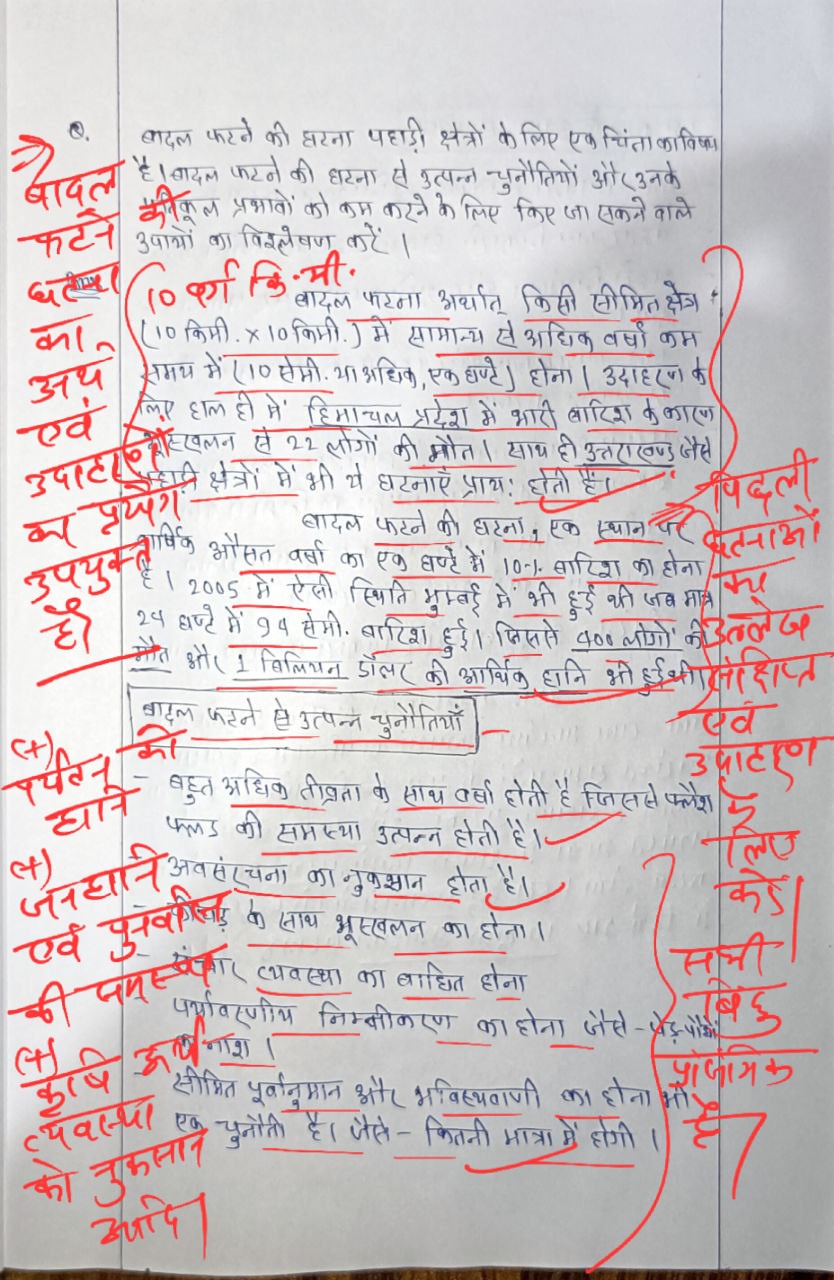 Q. बादल फटने की घटना पहाड़ी क्षेत्रों के लिए एक चिंता का विषय
है। बादल फटने की घटना से उत्पन्न चुनौतियों और उनके
प्रतिकूल प्रभावों को कम करने के लिए किए जा सकने वाले
उपायों का विश्लेषण करें।
बादल
फटने की
घटना
का
अर्थ
एवं
उदाहरणों
का प्रयोग
उपयुक्त
है।
10 वर्ग कि.मी.
बादल फटना अर्थात् किसी सीमित क्षेत्र
(10 किमी. x 10 किमी.) में सामान्य से अधिक वर्षा कम
समय में (10 सेमी. या अधिक, एक घण्टे) होना। उदाहरण के
लिए हाल ही में हिमाचल प्रदेश में भारी बारिश के कारण
भूस्खलन से 22 लोगों की मौत। साथ ही उत्तराखण्ड जैसे
पहाड़ी क्षेत्रों में भी ये घटनाएँ प्राय: होती हैं।
बादल फटने की घटना, एक स्थान पर
वार्षिक औसत वर्षा का एक घण्टे में 10% बारिश का होना
है। 2005 में ऐसी स्थिति मुम्बई में भी हुई थी जब मात्र
24 घण्टे में 94 सेमी. बारिश हुई। जिससे 400 लोगों की
मौत और 1 बिलियन डॉलर की आर्थिक हानि भी हुई थी।
पिछली
घटनाओं
का
उल्लेख
संक्षिप्त
एवं
उदाहरण
के
लिए
करें।
बादल फटने से उत्पन्न चुनौतियाँ
- बहुत अधिक तीव्रता के साथ वर्षा होती है जिससे फ्लैश
फ्लड की समस्या उत्पन्न होती है।
- अवसंरचना का नुकसान होता है।
- कीचड़ के साथ भूस्खलन का होना।
- संचार व्यवस्था का बाधित होना
- पर्यावरणीय निम्नीकरण का होना जैसे - पेड़-पौधों
का नाश।
- सीमित पूर्वानुमान और भविष्यवाणी का होना भी
एक चुनौती है। जैसे - कितनी मात्रा में होगी।
(+)
पर्यटन को
हानि
(+)
जनहानि
एवं पुनर्वास
की समस्या
(+)
कृषि अर्थ
व्यवस्था
को नुकसान
आदि।
सभी
बिंदु
प्रासंगिक
हैं